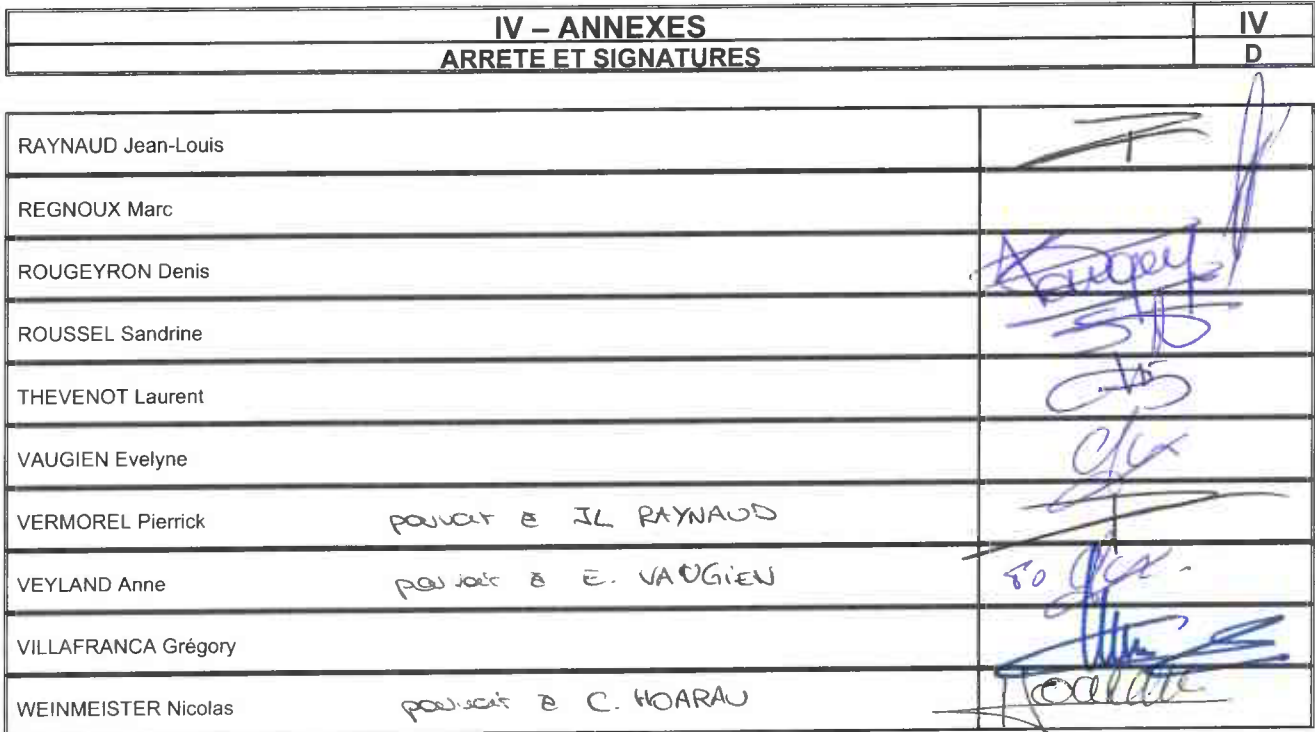 IV – ANNEXES IV
ARRETE ET SIGNATURES D
RAYNAUD Jean-Louis
REGNOUX Marc
ROUGEYRON Denis
ROUSSEL Sandrine
THEVENOT Laurent
VAUGIEN Evelyne
VERMOREL Pierrick pouvoir à JL RAYNAUD
VEYLAND Anne pouvoir à E. VAUGIEN
VILLAFRANCA Grégory
WEINMEISTER Nicolas pouvoir à C. HOARAU